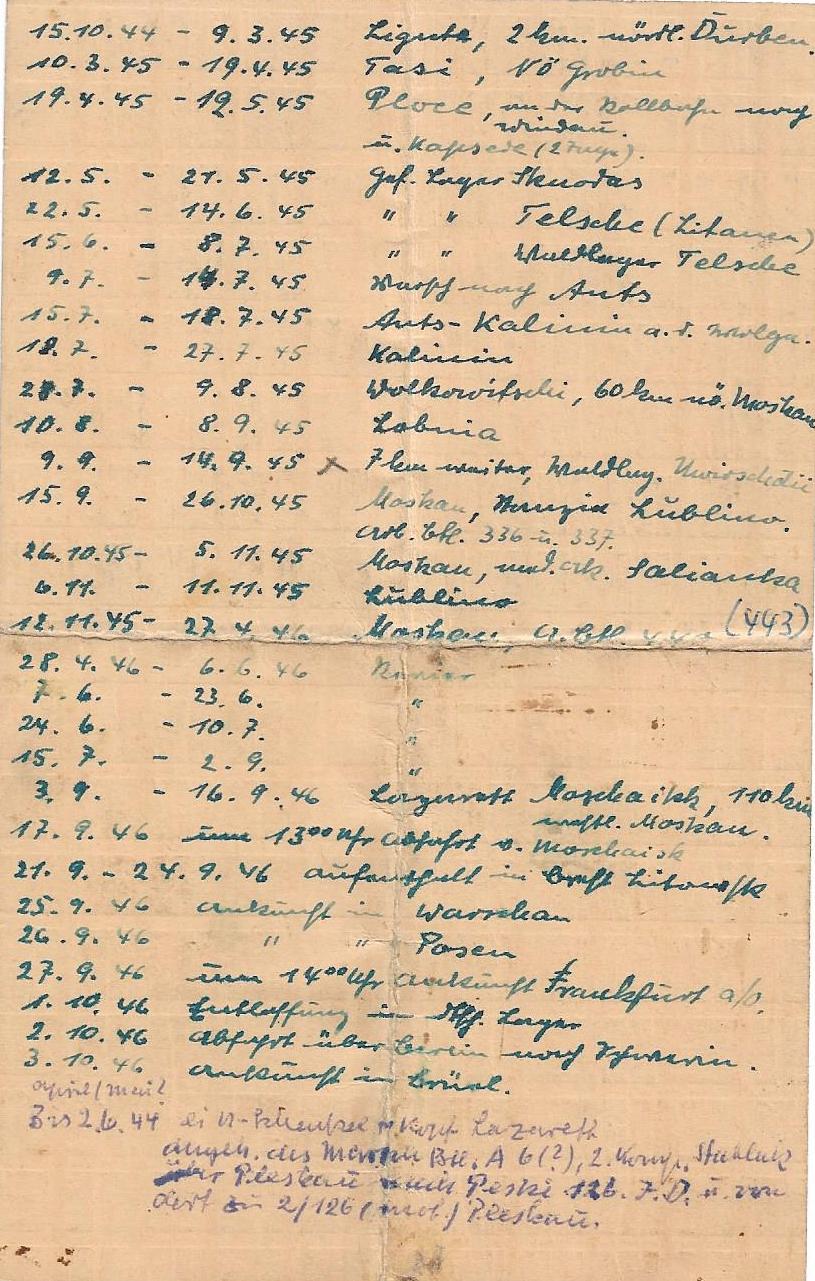 15.10.44 - 9.3.45 Ligute, 2 km. nördl. Durben.
10.3.45 - 19.4.45 Tasi, NÖ Grobin
19.4.45 - 12.5.45 Ploce, an der Rollbahn nach
Windau.
u. Kapsede (2 Züge).
12.5. - 21.5.45 Gef. Lager Skuodas
22.5. - 14.6.45 " " Telsche (Litauen)
15.6. - 8.7.45 " " Waldlager Telsche
9.7. - 14.7.45 Marsch nach Auts
15.7. - 18.7.45 Auts - Kalinin a. d. Wolga.
18.7. - 27.7.45 Kalinin
27.7. - 9.8.45 Wolkowitschi, 60 km nö. Moskau
10.8. - 8.9.45 Lobnia
9.9. - 14.9.45 x 7 km weiter, Waldlag.
15.9. - 26.10.45 Moskau, Lublino.
Arb. Btl. 336 u. 337.
26.10.45 - 5.11.45 Moskau, Salianka
6.11. - 11.11.45 Lublino
12.11.45 - 27.4.46 Moskau, A. Btl. (443)
28.4.46 - 6.6.46 Revier
7.6. - 23.6. "
24.6. - 10.7. "
15.7. - 2.9. "
3.9. - 16.9.46 Lazarett Moschaisk, 110 km
westl. Moskau.
17.9.46 um 13⁰⁰ Uhr Abfahrt v. Moschaisk
21.9. - 24.9.46 Aufenthalt in Brest Litowsk
25.9.46 Ankunft in Warschau
26.9.46 " " Posen
27.9.46 um 14⁰⁰ Uhr Ankunft Frankfurt a/O.
1.10.46 Entlassung in Lager
2.10.46 Abfahrt über Berlin nach Schwerin.
3.10.46 Ankunft in Brüel.
April/Mai?
Bis 2.6.44 Lazarett
angeh. des Marsch Btl. A 6(?), 2. Komp.,
über Pleskau Peski 126. I.D. u. von
dort zu 2/126 (mot.) Pleskau.